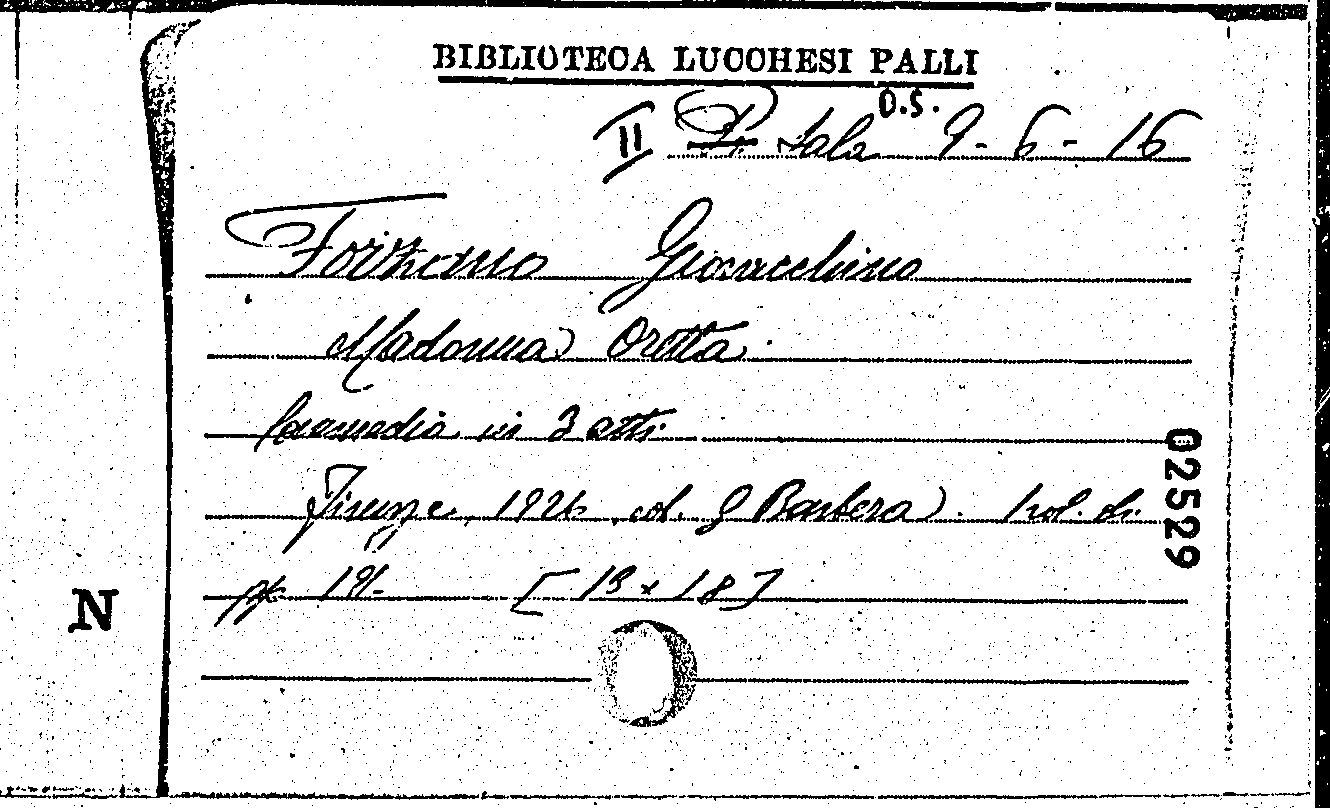 BIBLIOTECA LUCCHESI PALLI
O.S.
II Pr. Sala 9-6-16
Forzano Giovacchino
Madonna Oretta.
Commedia in 3 atti
Firenze, 1926, ed. G Barbera. Vol. di
pp. 191. [13 x 18]
02529
N